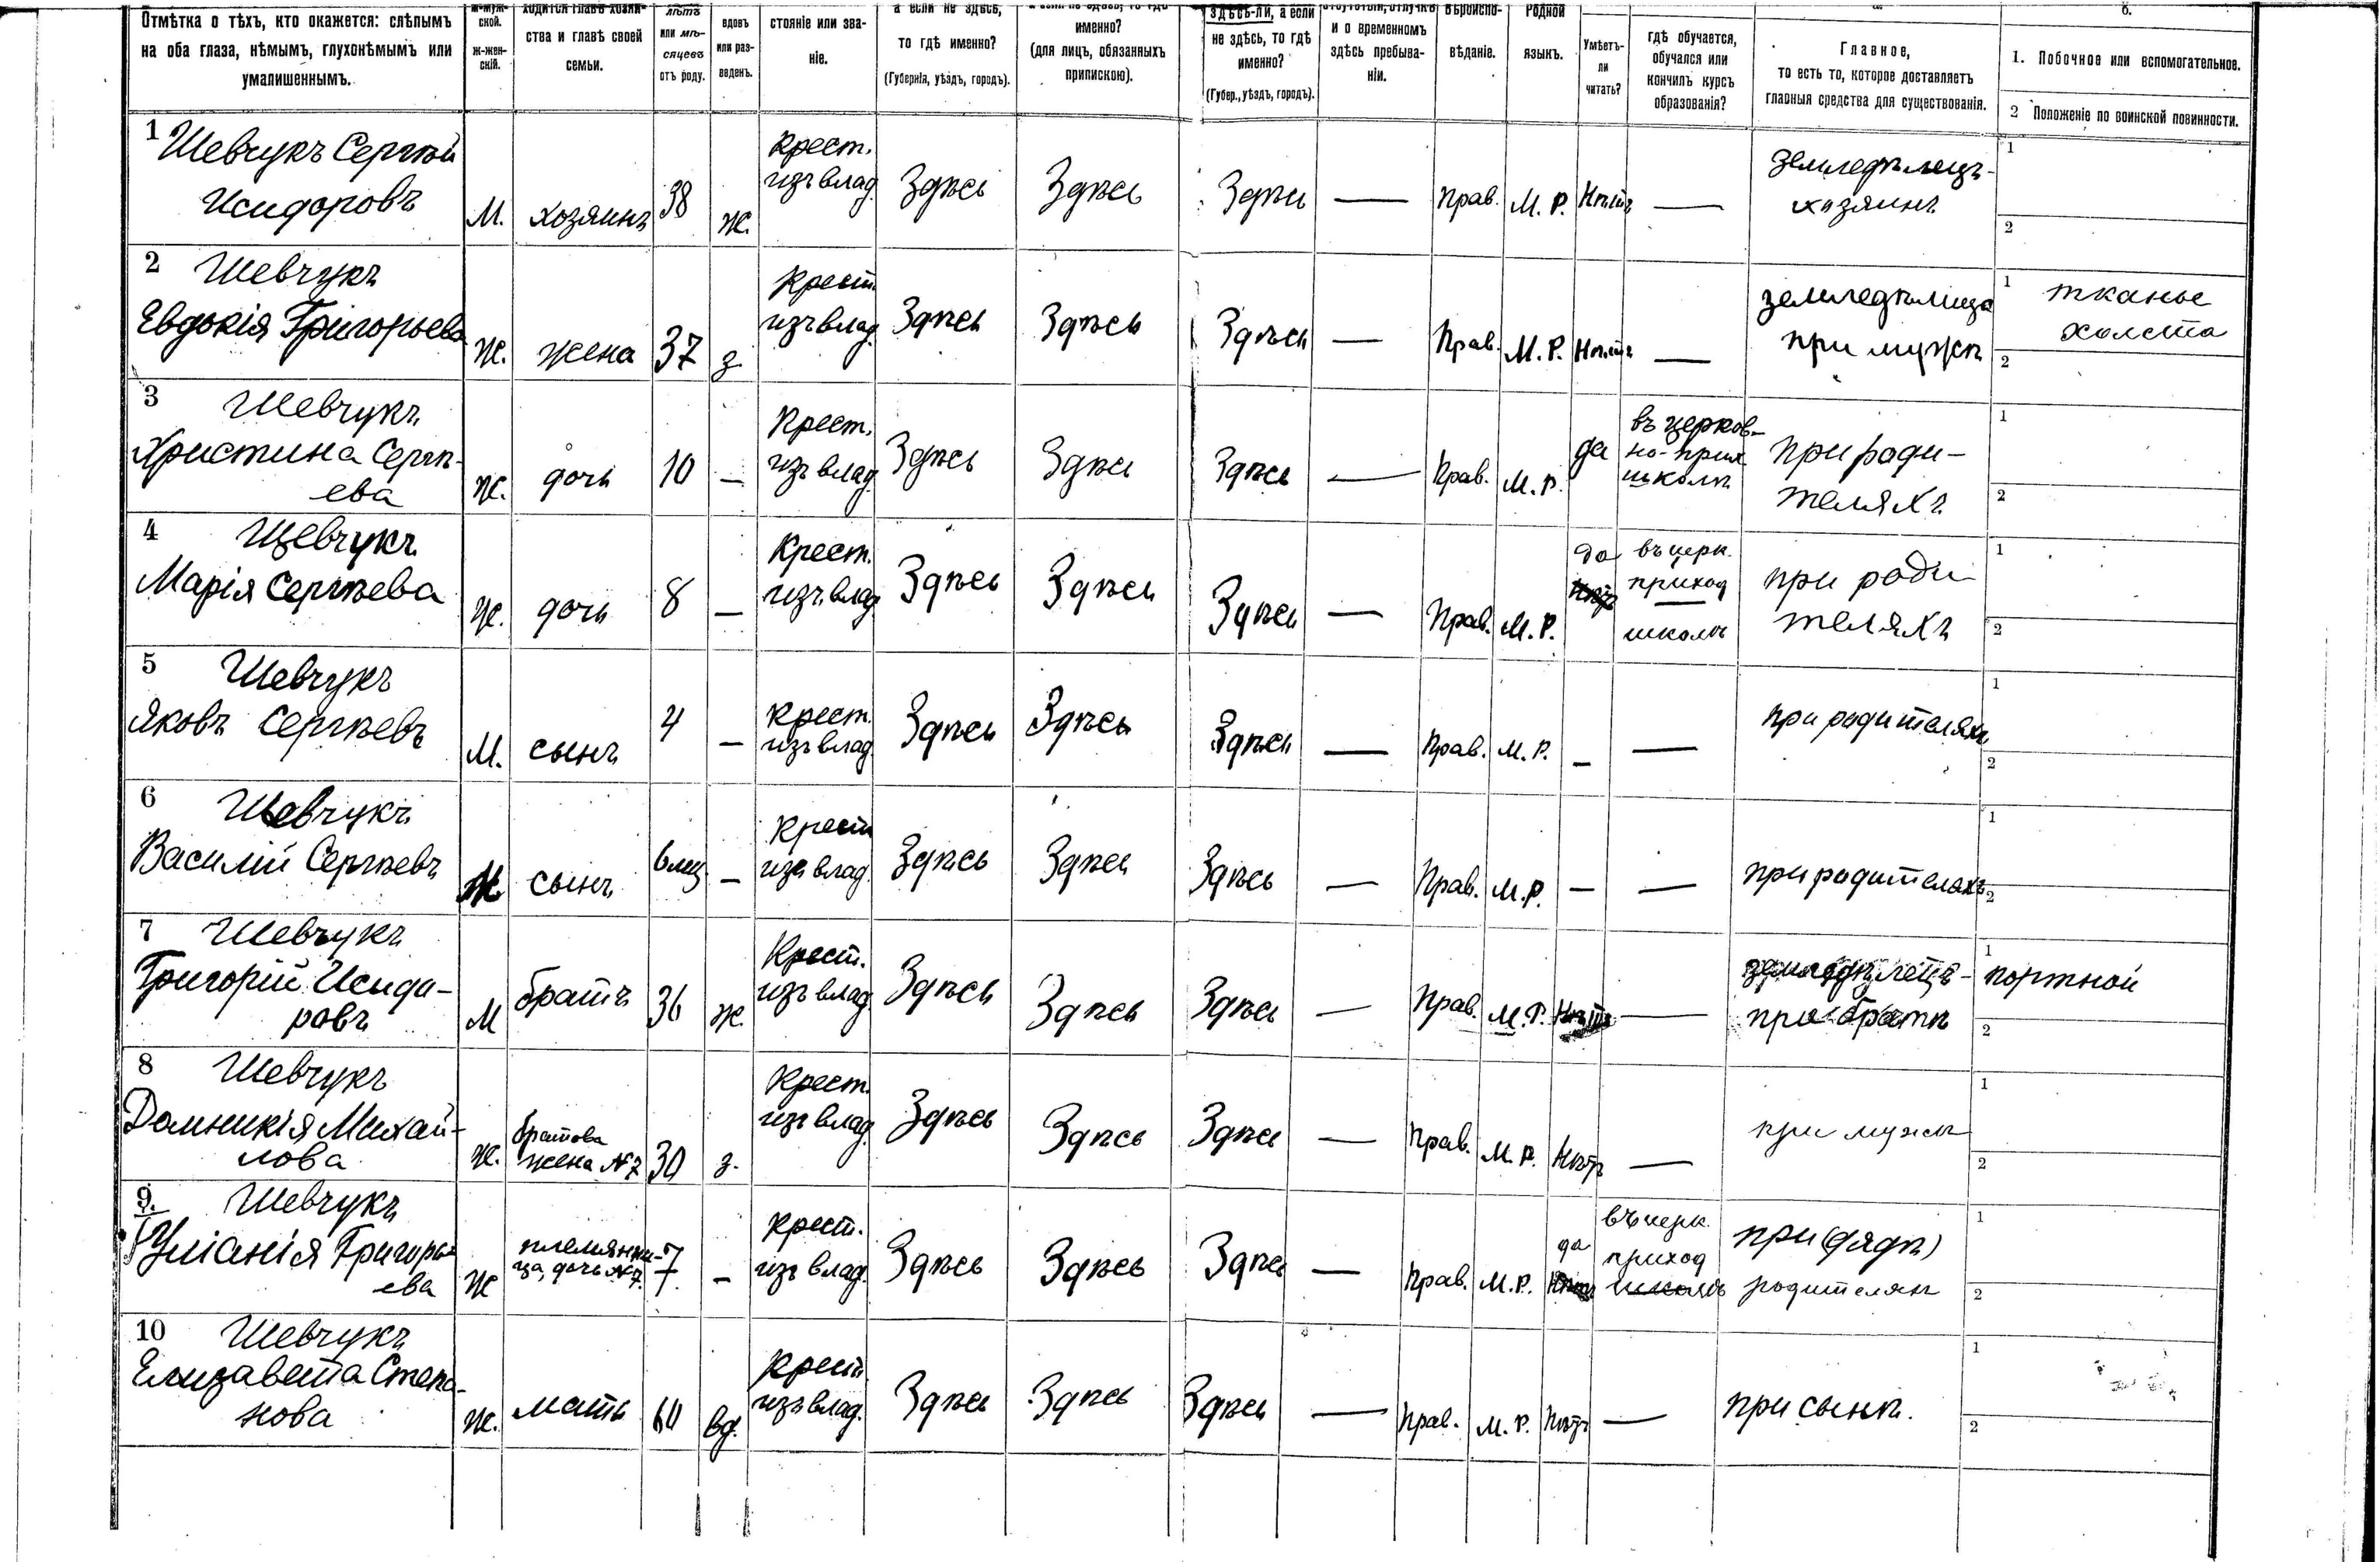 Отмѣтка о тѣхъ, кто окажется: слѣпымъ
на оба глаза, нѣмымъ, глухонѣмымъ или
умалишеннымъ.
м-муж-
ской.
ж-жен-
скій.
ходится главѣ хозяй-
ства и главѣ своей
семьи.
лѣтъ
или мѣ-
сяцевъ
отъ роду.
вдовъ
или раз-
веденъ.
стояніе или зва-
ніе.
а если не здѣсь,
то гдѣ именно?
(Губернія, уѣздъ, городъ).
а если не здѣсь, то гдѣ
именно?
(для лицъ, обязанныхъ
припискою).
здѣсь-ли, а если
не здѣсь, то гдѣ
именно?
(Губер., уѣздъ, городъ).
отсутствіи, отлучкѣ
и о временномъ
здѣсь пребыва-
ніи.
Вѣроиспо-
вѣданіе.
Родной
языкъ.
Умѣетъ-
ли
читать?
гдѣ обучается,
обучался или
кончилъ курсъ
образованія?
Главное,
то есть то, которое доставляетъ
главныя средства для существованія.
б.
1. Побочное или вспомогательное.
2 Положеніе по воинской повинности.
1 Шевчукъ Сергѣй
Исидоровъ
М.
хозяинъ
38
ж.
Крест.
изъ влад.
Здѣсь
Здѣсь
Здѣсь
—
Прав.
М. Р.
Нѣтъ
—
земледѣлецъ-
хозяинъ
1
2
2 Шевчукъ
Евдокія Григорьева
Ж.
жена
37
з.
Крест.
изъ влад.
Здѣсь
Здѣсь
Здѣсь
—
Прав.
М. Р.
Нѣтъ
—
земледѣлица
при мужѣ
1 тканье
холста
2
3 Шевчукъ
Христина Сергѣ-
ева
Ж.
дочь
10
—
Крест.
изъ влад.
Здѣсь
Здѣсь
Здѣсь
—
Прав.
М. Р.
да
въ церков-
но-прих
школѣ
при роди-
теляхъ
1
2
4 Шевчукъ
Марія Сергѣева
Ж.
дочь
8
—
Крест.
изъ влад.
Здѣсь
Здѣсь
Здѣсь
—
Прав.
М. Р.
да
нѣтъ
въ церк.
приход
—
школѣ
при роди
теляхъ
1
2
5 Шевчукъ
Яковъ Сергѣевъ
М.
сынъ
4
—
Крест.
изъ влад.
Здѣсь
Здѣсь
Здѣсь
—
Прав.
М. Р.
—
—
при родителяхъ
1
2
6 Шевчукъ
Василій Сергѣевъ
М
сынъ
6 мц.
—
Крест
изъ влад.
Здѣсь
Здѣсь
Здѣсь
—
Прав.
М. Р.
—
—
при родителяхъ
1
2
7 Шевчукъ
Григорій Исидо-
ровъ
М
братъ
36
ж.
Крест.
изъ влад.
Здѣсь
Здѣсь
Здѣсь
—
Прав.
М. Р.
Нѣтъ
—
земледѣлецъ-
при братѣ
1 портной
2
8 Шевчукъ
Домникія Михай-
лова
Ж.
братова
жена №7
30
з.
Крест.
изъ влад.
Здѣсь
Здѣсь
Здѣсь
—
Прав.
М. Р.
Нѣтъ
—
при мужѣ
1
2
9. Шевчукъ
Уліанія Григорь-
ева
Ж
племянни-
ца, дочь №7.
7
—
Крест.
изъ влад.
Здѣсь
Здѣсь
Здѣсь
—
Прав.
М. Р.
да
Нѣтъ
въ церк.
приход
школѣ
при (дядѣ)
родителяхъ
1
2
10 Шевчукъ
Елизавета Степа-
нова
Ж.
мать
60
вд.
Крест.
изъ влад.
Здѣсь
Здѣсь
Здѣсь
—
Прав.
М. Р.
Нѣтъ
—
при сынѣ.
1
2